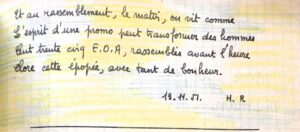 Et au rassemblement, le matin, on vit comme
L'esprit d'une promo peut transformer des hommes
Ont trente cinq E.O.A, rassemblés avant l'heure
Clore cette épopée, avec tant de bonheur.
19.11.51. H. R